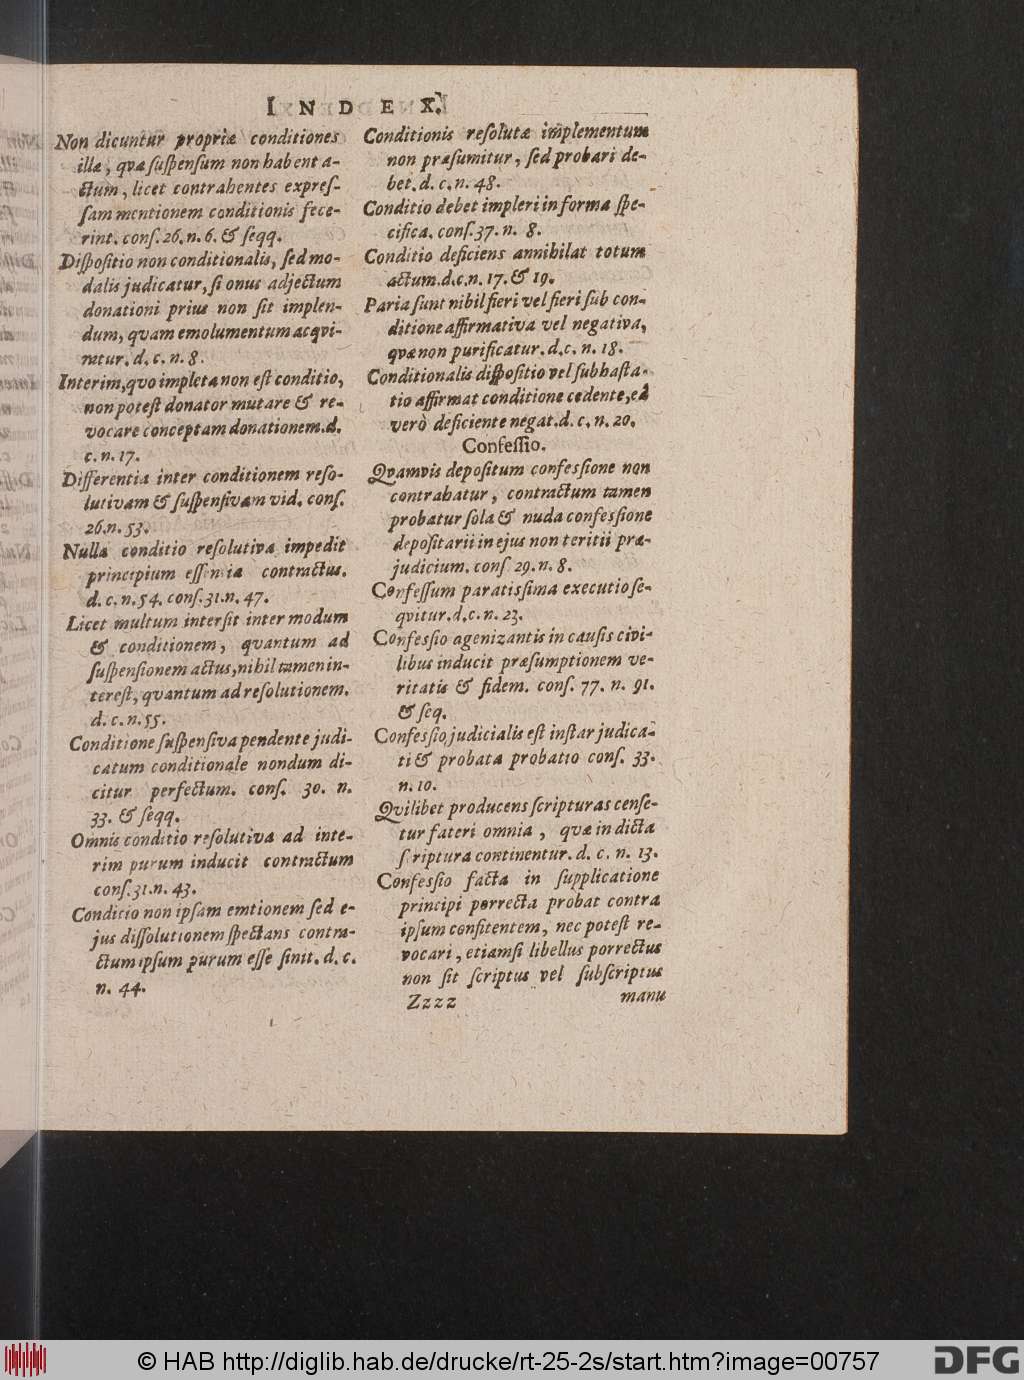 INDEX.
Non dicuntur propriæ conditiones
illæ, quæ ſuſpenſum non habent a-
ctum, licet contrahentes expreſ-
ſam mentionem conditionis fece-
rint. conſ. 26. n. 6. & ſeqq.
Diſpoſitio non conditionalis, ſed mo-
dalis judicatur, ſi onus adjectum
donationi prius non ſit implen-
dum, quam emolumentum acqvi-
ratur. d. c. n. 8.
Interim, quo impleta non eſt conditio,
non poteſt donator mutare & re-
vocare conceptam donationem. d.
c. n. 17.
Differentia inter conditionem reſo-
lutivam & ſuſpenſivam vid. conſ.
26. n. 53.
Nulla conditio reſolutiva impedit
principium eſſentia contractus.
d. c. n. 54. conſ. 31. n. 47.
Licet multum interſit inter modum
& conditionem, qvantum ad
ſuſpenſionem actus, nihil tamen in-
tereſt, qvantum ad reſolutionem.
d. c. n. 55.
Conditione ſuſpenſiva pendente judi-
catum conditionale nondum di-
citur perfectum. conſ. 30. n.
33. & ſeqq.
Omnis conditio reſolutiva ad inte-
rim purum inducit contractum
conſ. 31. n. 43.
Conditio non ipſam emtionem ſed e-
jus diſſolutionem ſpectans contra-
ctum ipſum purum eſſe ſinit. d. c.
n. 44.
Conditionis reſolutæ implementum
non præſumitur, ſed probari de-
bet. d. c. n. 48.
Conditio debet impleri in forma ſpe-
cifica. conſ. 37. n. 8.
Conditio deficiens annihilat totum
actum. d. c. n. 17. & 19.
Paria ſunt nihil fieri vel fieri ſub con-
ditione affirmativa vel negativa,
qvæ non purificatur. d. c. n. 18.
Conditionalis diſpoſitio vel ſubhaſta-
tio affirmat conditione cedente, eâ
verò deficiente negat. d. c. n. 20.
Confeſſio.
Qvamvis depoſitum confeſſione non
contrahatur, contractum tamen
probatur ſola & nuda confeſſione
depoſitarii in ejus non teritii præ-
judicium. conſ 29. n. 8.
Confeſſum paratisſima executio ſe-
qvitur. d. c. n. 23.
Confeſſio agenizantis in cauſis civi-
libus inducit præſumptionem ve-
ritatis & fidem. conſ. 77. n. 91.
& ſeq.
Confeſſio judicialis eſt inſtar judica-
ti & probata probatio conſ. 33.
n. 10.
Qvilibet producens ſcripturas cenſe-
tur fateri omnia, qvæ in dicta
ſcriptura continentur. d. c. n. 13.
Confeſſio facta in ſupplicatione
principi porrecta probat contra
ipſum confitentem, nec poteſt re-
vocari, etiamſi libellus porrectus
non ſit ſcriptus vel ſubſcriptus
Zzzz manu
© HAB http://diglib.hab.de/drucke/rt-25-2s/start.htm?image=00757
DFG